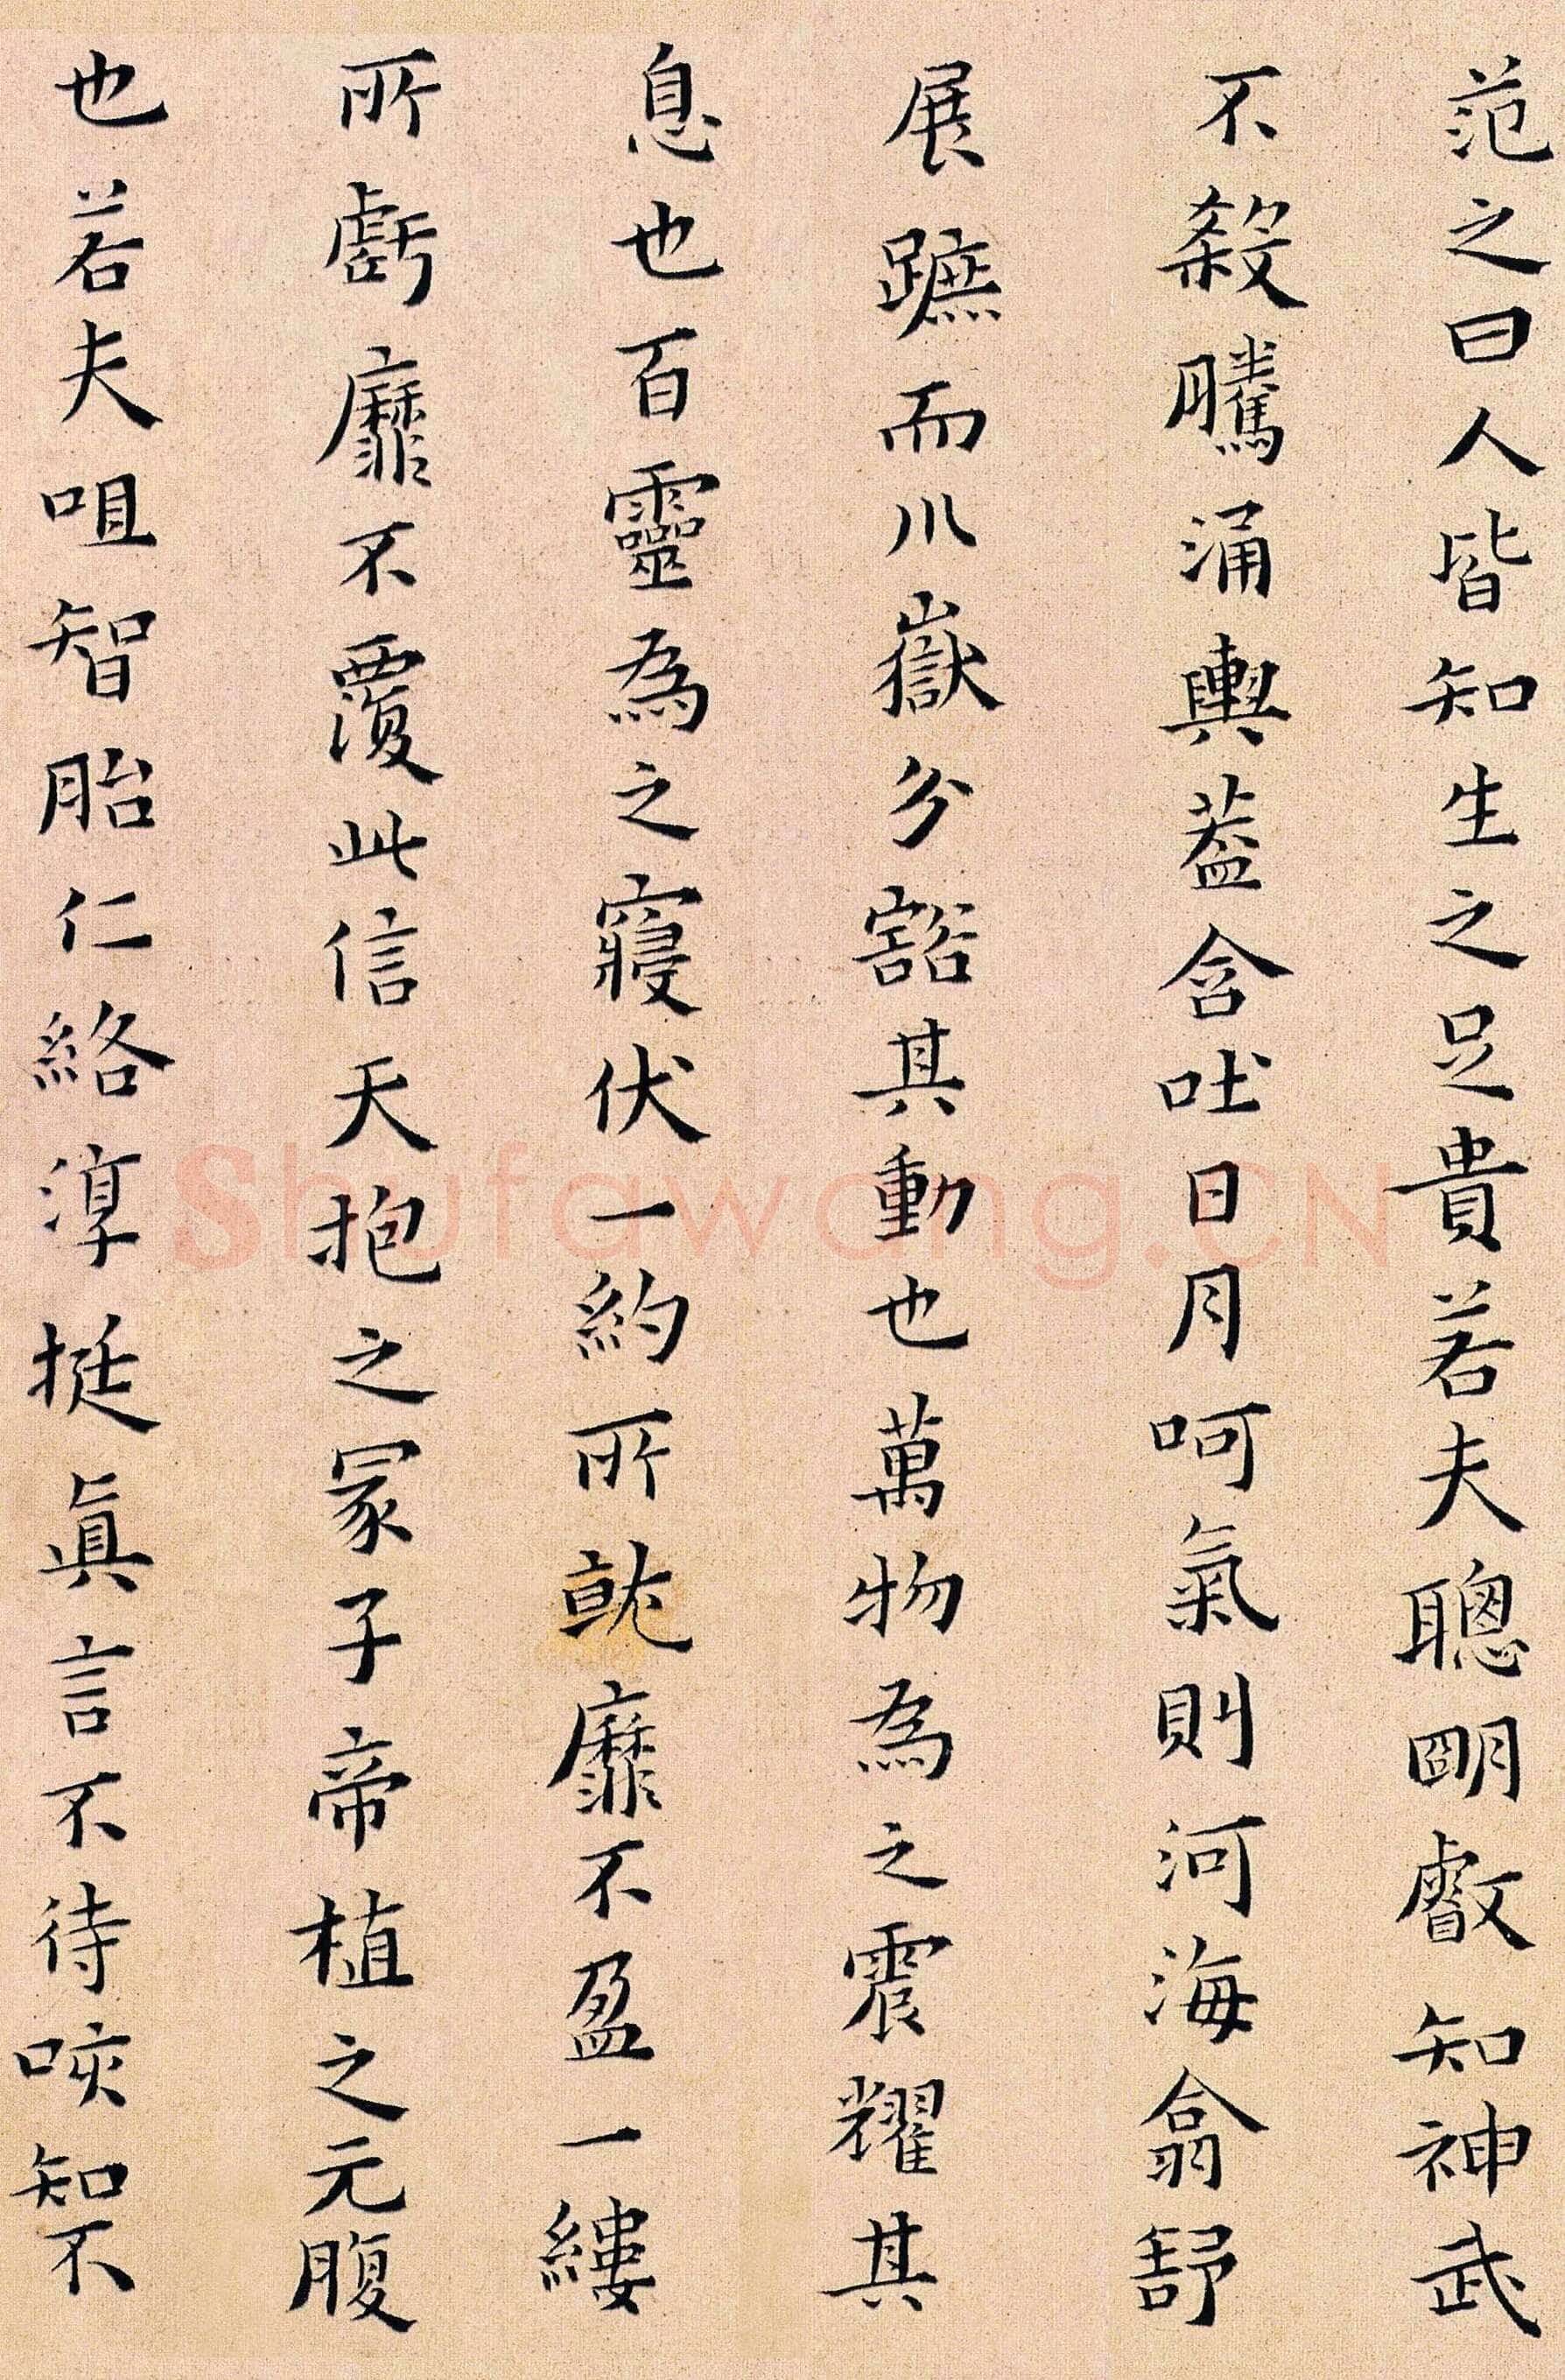 范之曰人皆知生之足貴若夫聰明叡知神武
不殺騰涌輿蓋含吐日月呵氣則河海翕舒
展蹠而川嶽分豁其動也萬物為之震耀其
息也百靈為之寢伏一約所就靡不盈一縷
所虧靡不覆此信天抱之冢子帝植之元腹
也若夫咀智胎仁絡淳挺眞言不待咳知不
Shufawang.CN